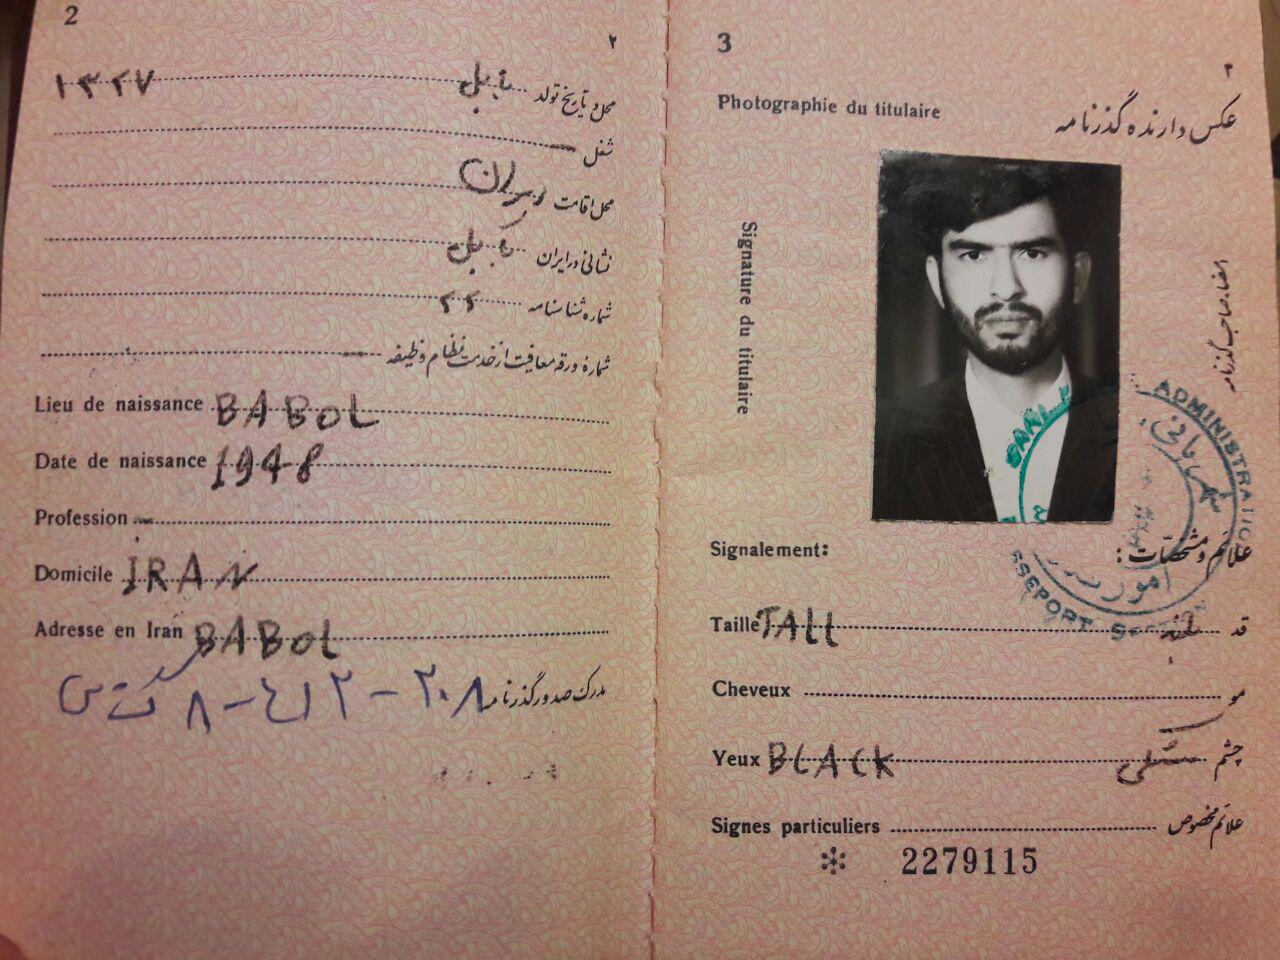 2
۲
محل و تاریخ تولد بابل ۱۳۲۷
شغل —
محل اقامت ایران
نشانی در ایران بابل
شماره شناسنامه ۲۲
شماره ورقه معافیت از خدمت نظام وظیفه —
Lieu de naissance BABOL
Date de naissance 1948
Profession -
Domicile IRAN
Adresse en Iran BABOL
مدرک صدور گذرنامه
3
۳
Photographie du titulaire
عکس دارنده گذرنامه
Signature du titulaire
امضاء صاحب گذرنامه
ADMINISTRATION
شهربانی
امور
Signalement:
علائم و مشخصات :
Taille TALL
قد بلند
Cheveux
مو
Yeux BLACK
چشم مشکی
Signes particuliers
علائم مخصوص
* 2279115